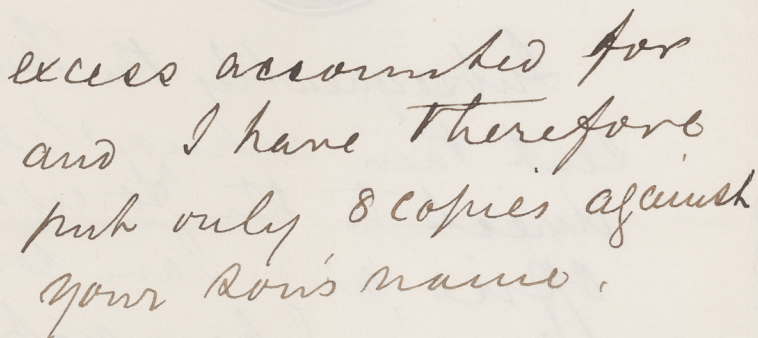 excess accounted for
and I have therefore
put only 8 copies against
your son's name.